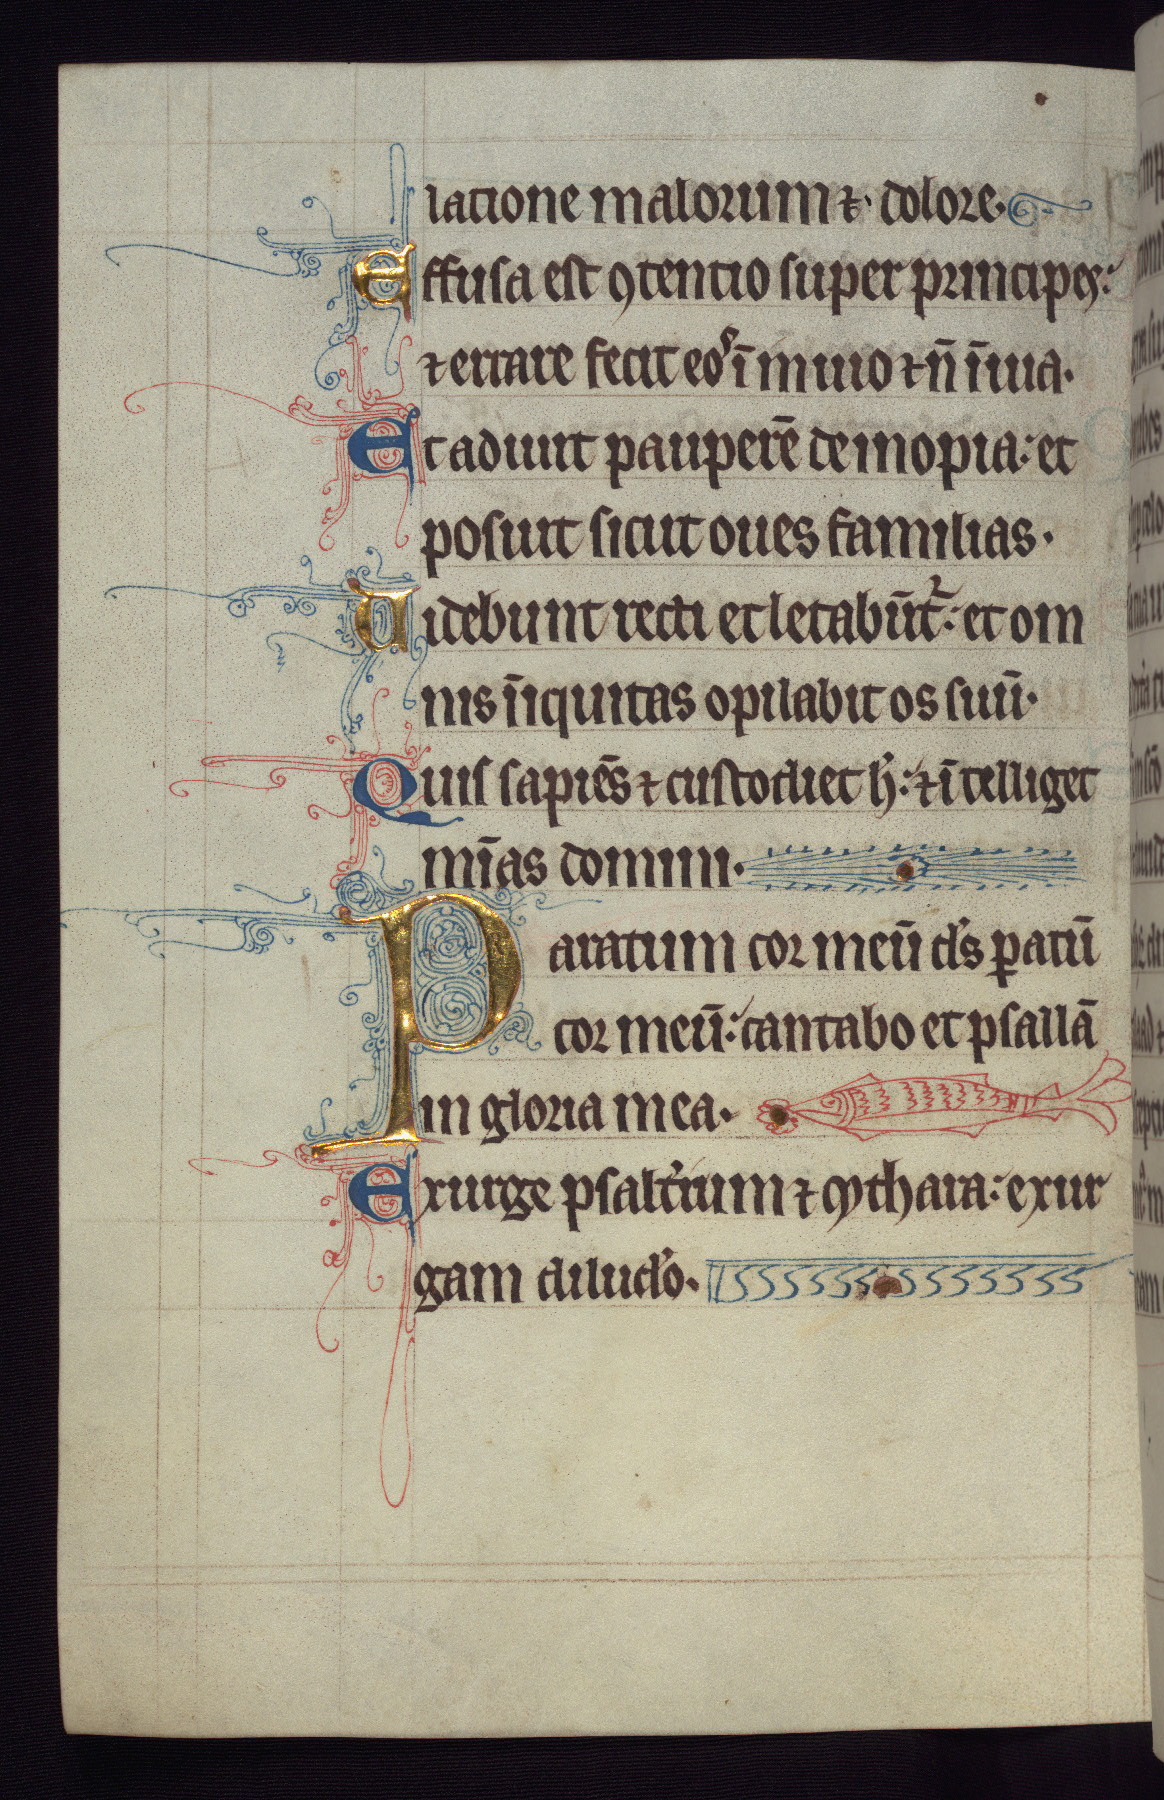 latione malorum ⁊ dolore.
Effusa est ꝯtentio super principes:
⁊ errare fecit eos ī inuio ⁊ n̄ ī uia.
Et adiuit pauperē de inopia: et
posuit sicut oues familias.
Uidebunt recti et letabūt᷑: et om
nis īiquitas opilabit os suū.
Quis sapiēs ⁊ custodiet h̾: ⁊ ītelliget
mīas domini.
Paratum cor meū d̾s ꝑatū
cor meū: cantabo et psallā
in gloria mea.
Exurge psalt̾ium ⁊ cythara: exur
gam diluc̾lo.